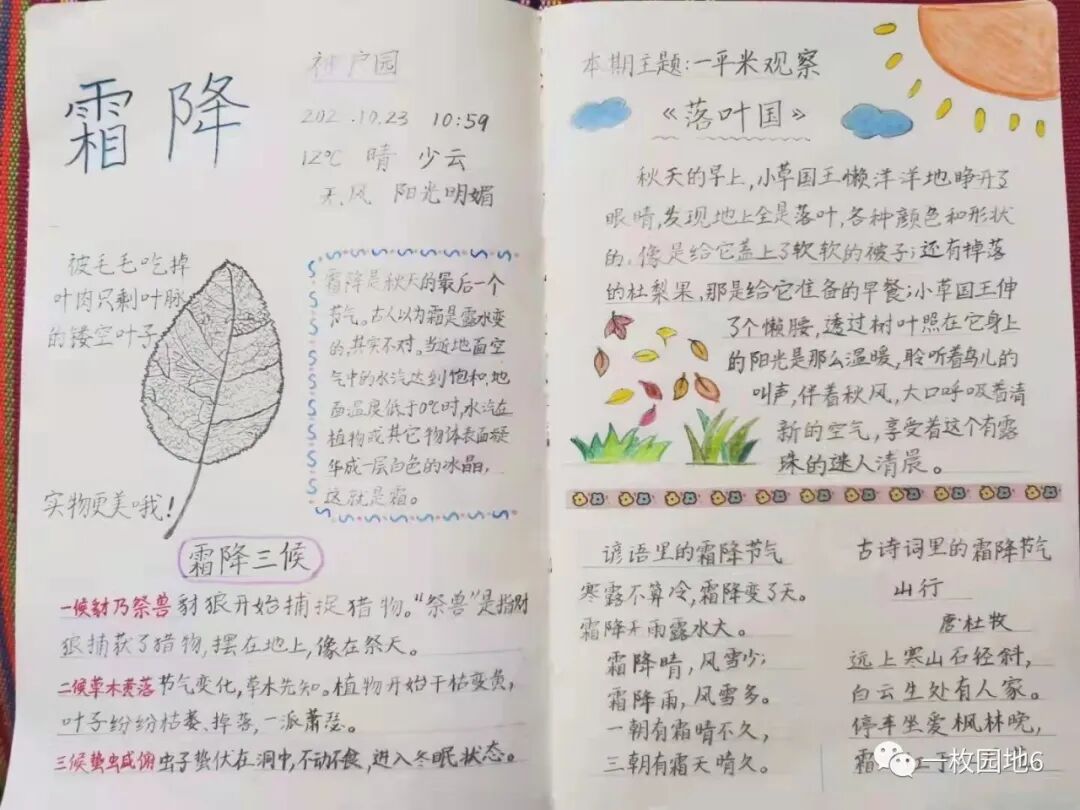 霜降
神户园
202 .10.23 10:59
12℃ 晴 少云
无风 阳光明媚
被毛毛吃掉
叶肉只剩叶脉
的镂空叶子
实物更美哦!
霜降是秋天的最后一个
节气。古人以为霜是露水变
的,其实不对。当近地面空
气中的水汽达到饱和,地
面温度低于0℃时,水汽在
植物或其它物体表面凝
华成一层白色的冰晶,
这就是霜。
霜降三候
一候豺乃祭兽 豺狼开始捕捉猎物。“祭兽”是指豺
狼捕获了猎物,摆在地上,像在祭天。
二候草木黄落 节气变化,草木先知。植物开始干枯变黄,
叶子纷纷枯萎、掉落,一派萧瑟。
三候蛰虫咸俯 虫子蛰伏在洞中,不动不食,进入冬眠状态。
本期主题:一平米观察
《落叶国》
秋天的早上,小草国王懒洋洋地睁开了
眼睛,发现地上全是落叶,各种颜色和形状
的,像是给它盖上了软软的被子;还有掉落
的杜梨果,那是给它准备的早餐;小草国王伸
了个懒腰,透过树叶照在它身上
的阳光是那么温暖,聆听着鸟儿的
叫声,伴着秋风,大口呼吸着清
新的空气,享受着这个有露
珠的迷人清晨。
谚语里的霜降节气
寒露不算冷,霜降变了天。
霜降无雨露水大。
霜降晴,风雪少;
霜降雨,风雪多。
一朝有霜晴不久,
三朝有霜天晴久。
古诗词里的霜降节气
山行
唐·杜牧
远上寒山石径斜,
白云生处有人家。
停车坐爱枫林晚,
霜
一枚园地6